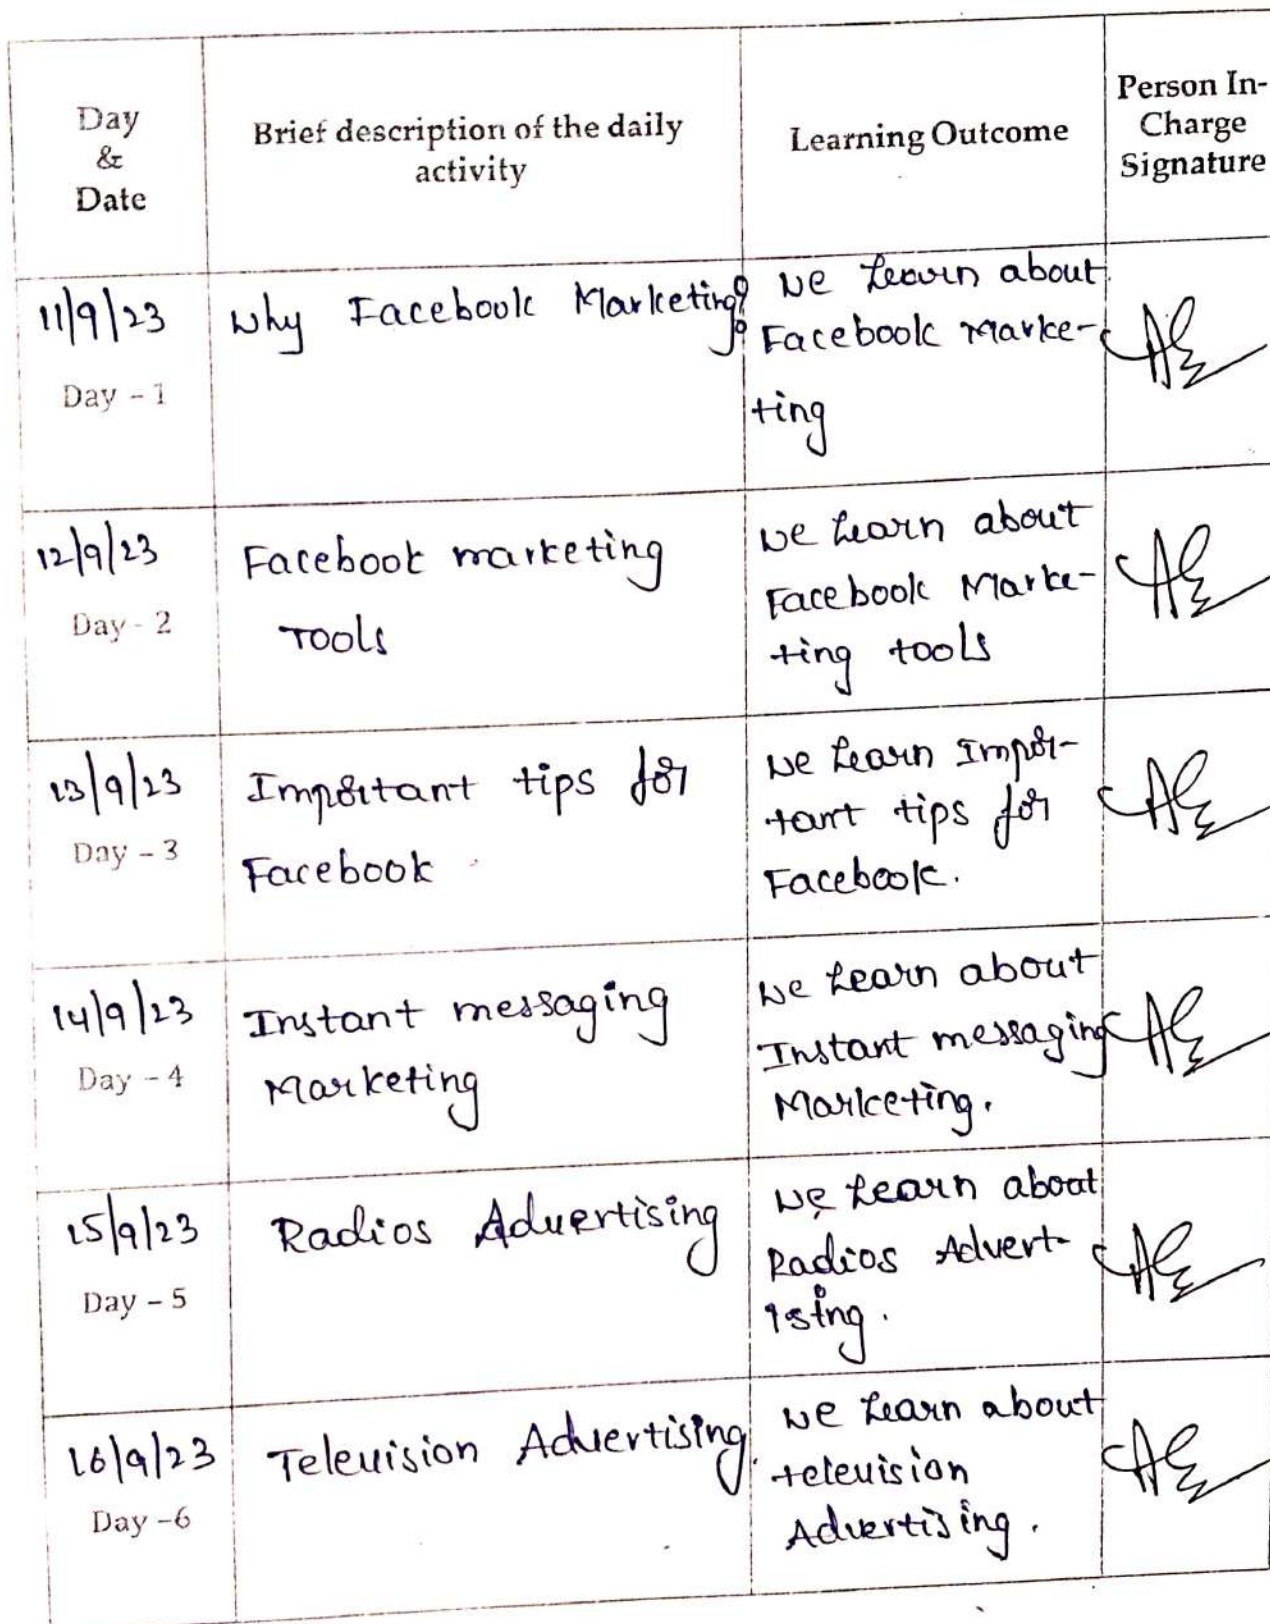 Day
&
Date
Brief description of the daily
activity
Learning Outcome
Person In-
Charge
Signature
11/9/23
Day - 1
Why Facebook Marketing?
We Learn about
Facebook Marke-
ting
12/9/23
Day - 2
Facebook marketing
Tools
We Learn about
Facebook Marke-
ting tools
13/9/23
Day - 3
Important tips for
Facebook
We Learn Impor-
tant tips for
Facebook.
14/9/23
Day - 4
Instant messaging
Marketing
We Learn about
Instant messaging
Marketing.
15/9/23
Day - 5
Radios Advertising
We Learn about
Radios Advert-
ising.
16/9/23
Day -6
Television Advertising
We Learn about
television
Advertising.